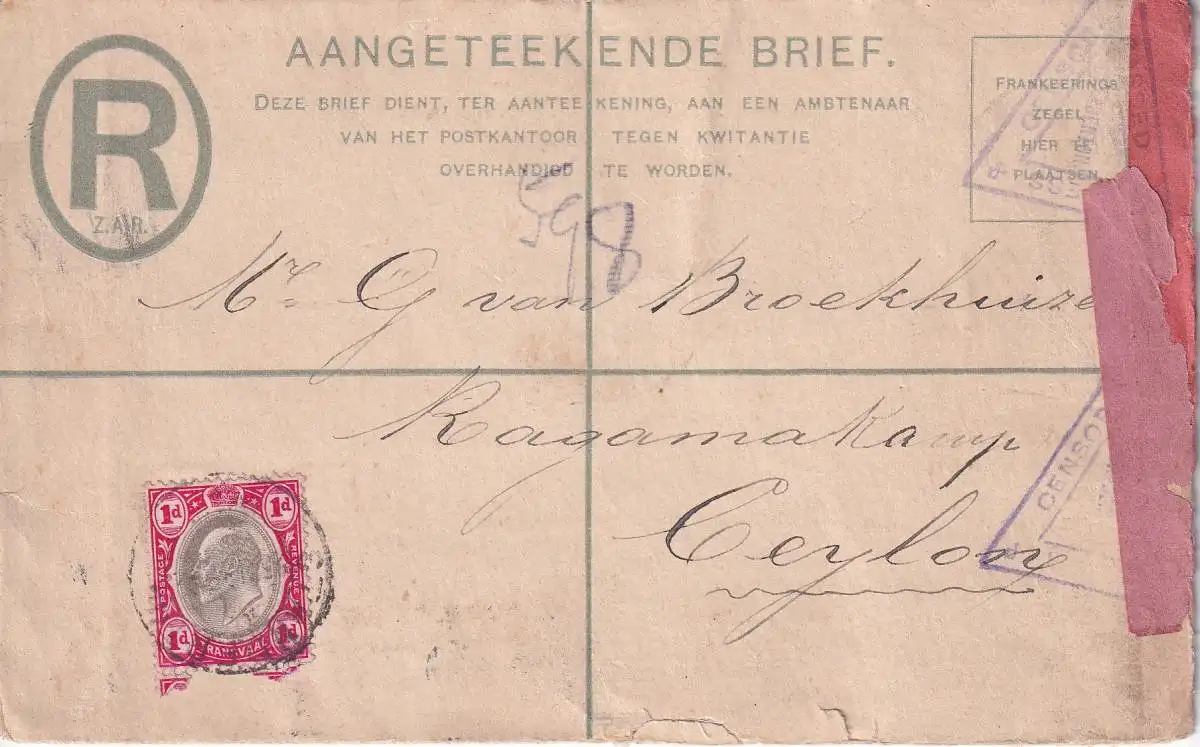 R
Z.A.R.
AANGETEEKENDE BRIEF.
DEZE BRIEF DIENT, TER AANTEEKENING, AAN EEN AMBTENAAR
VAN HET POSTKANTOOR TEGEN KWITANTIE
OVERHANDIGD TE WORDEN.
FRANKEERINGS
ZEGEL
HIER TE
PLAATSEN
PASSED
CENSOR
598
Mr. G van Broekhuize
Ragama Kamp
Ceylon
CENSOR
1d 1d
POSTAGE REVENUE
1d 1d
TRANSVAAL